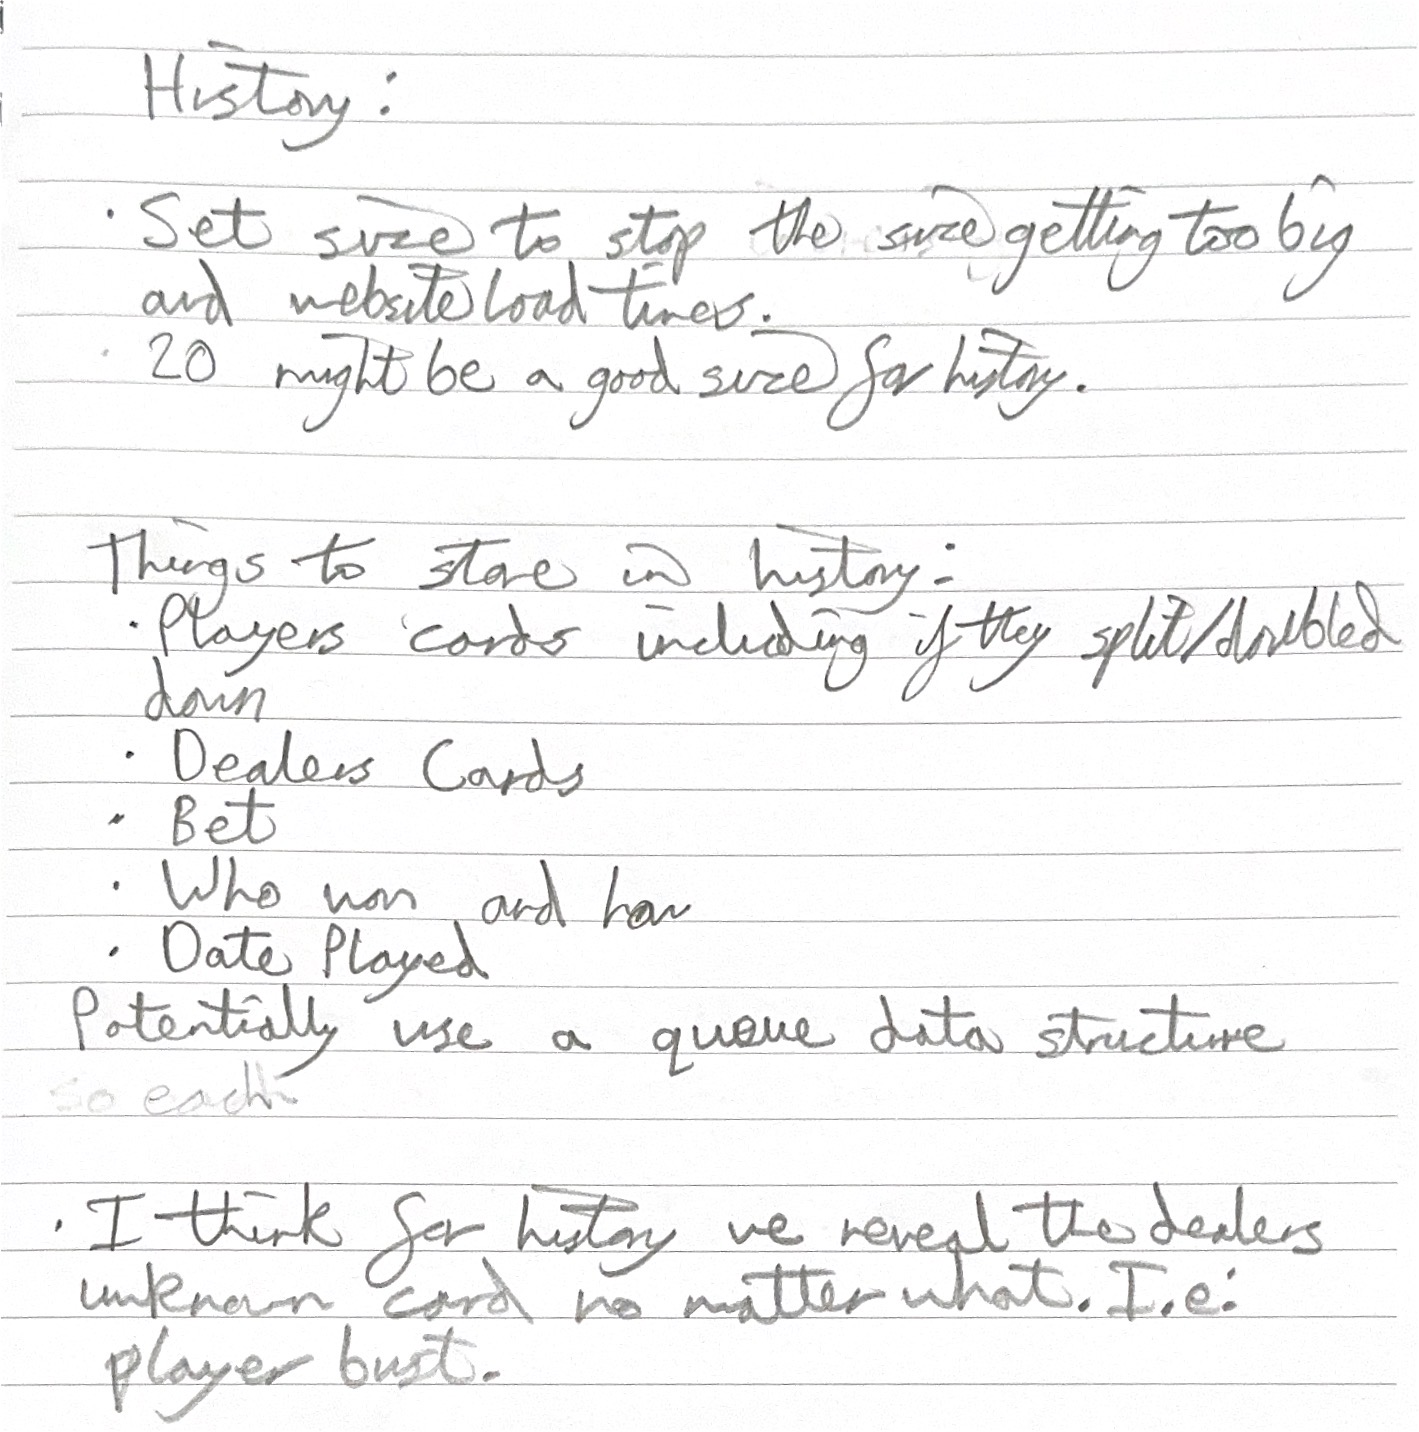 History:
· Set size to stop the size getting too big
and website load times.
· 20 might be a good size for history.
Things to store in history:
· Players cards including if they split/doubled
down
· Dealers Cards
· Bet
· Who won and how
· Date Played
Potentially use a queue data structure
so each
· I think for history we reveal the dealers
unknown card no matter what. I.e:
player bust.